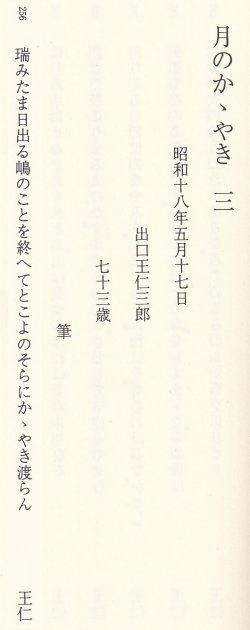 月のかゝやき　三
昭和十八年五月十七日
出口王仁三郎
七十三歳
筆
瑞みたま日出る嶋のことを終へてとこよのそらにかゝやき渡らん　王仁
256